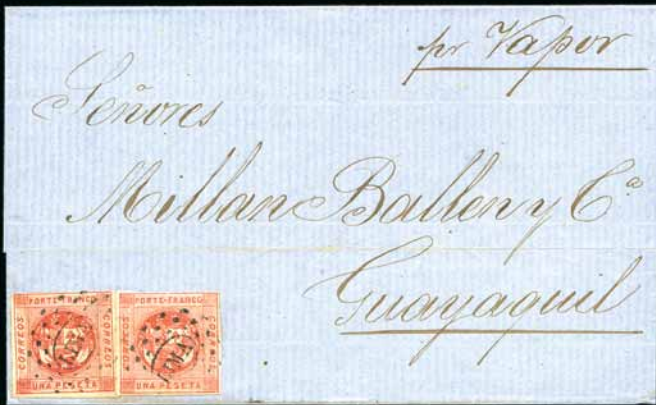 pr Vapor
Señores
Millan Ballen y Cª
Guayaquil
PORTE FRANCO
CORREOS
CORREOS
UNA PESETA
LIMA
PORTE FRANCO
CORREOS
CORREOS
UNA PESETA
LIMA